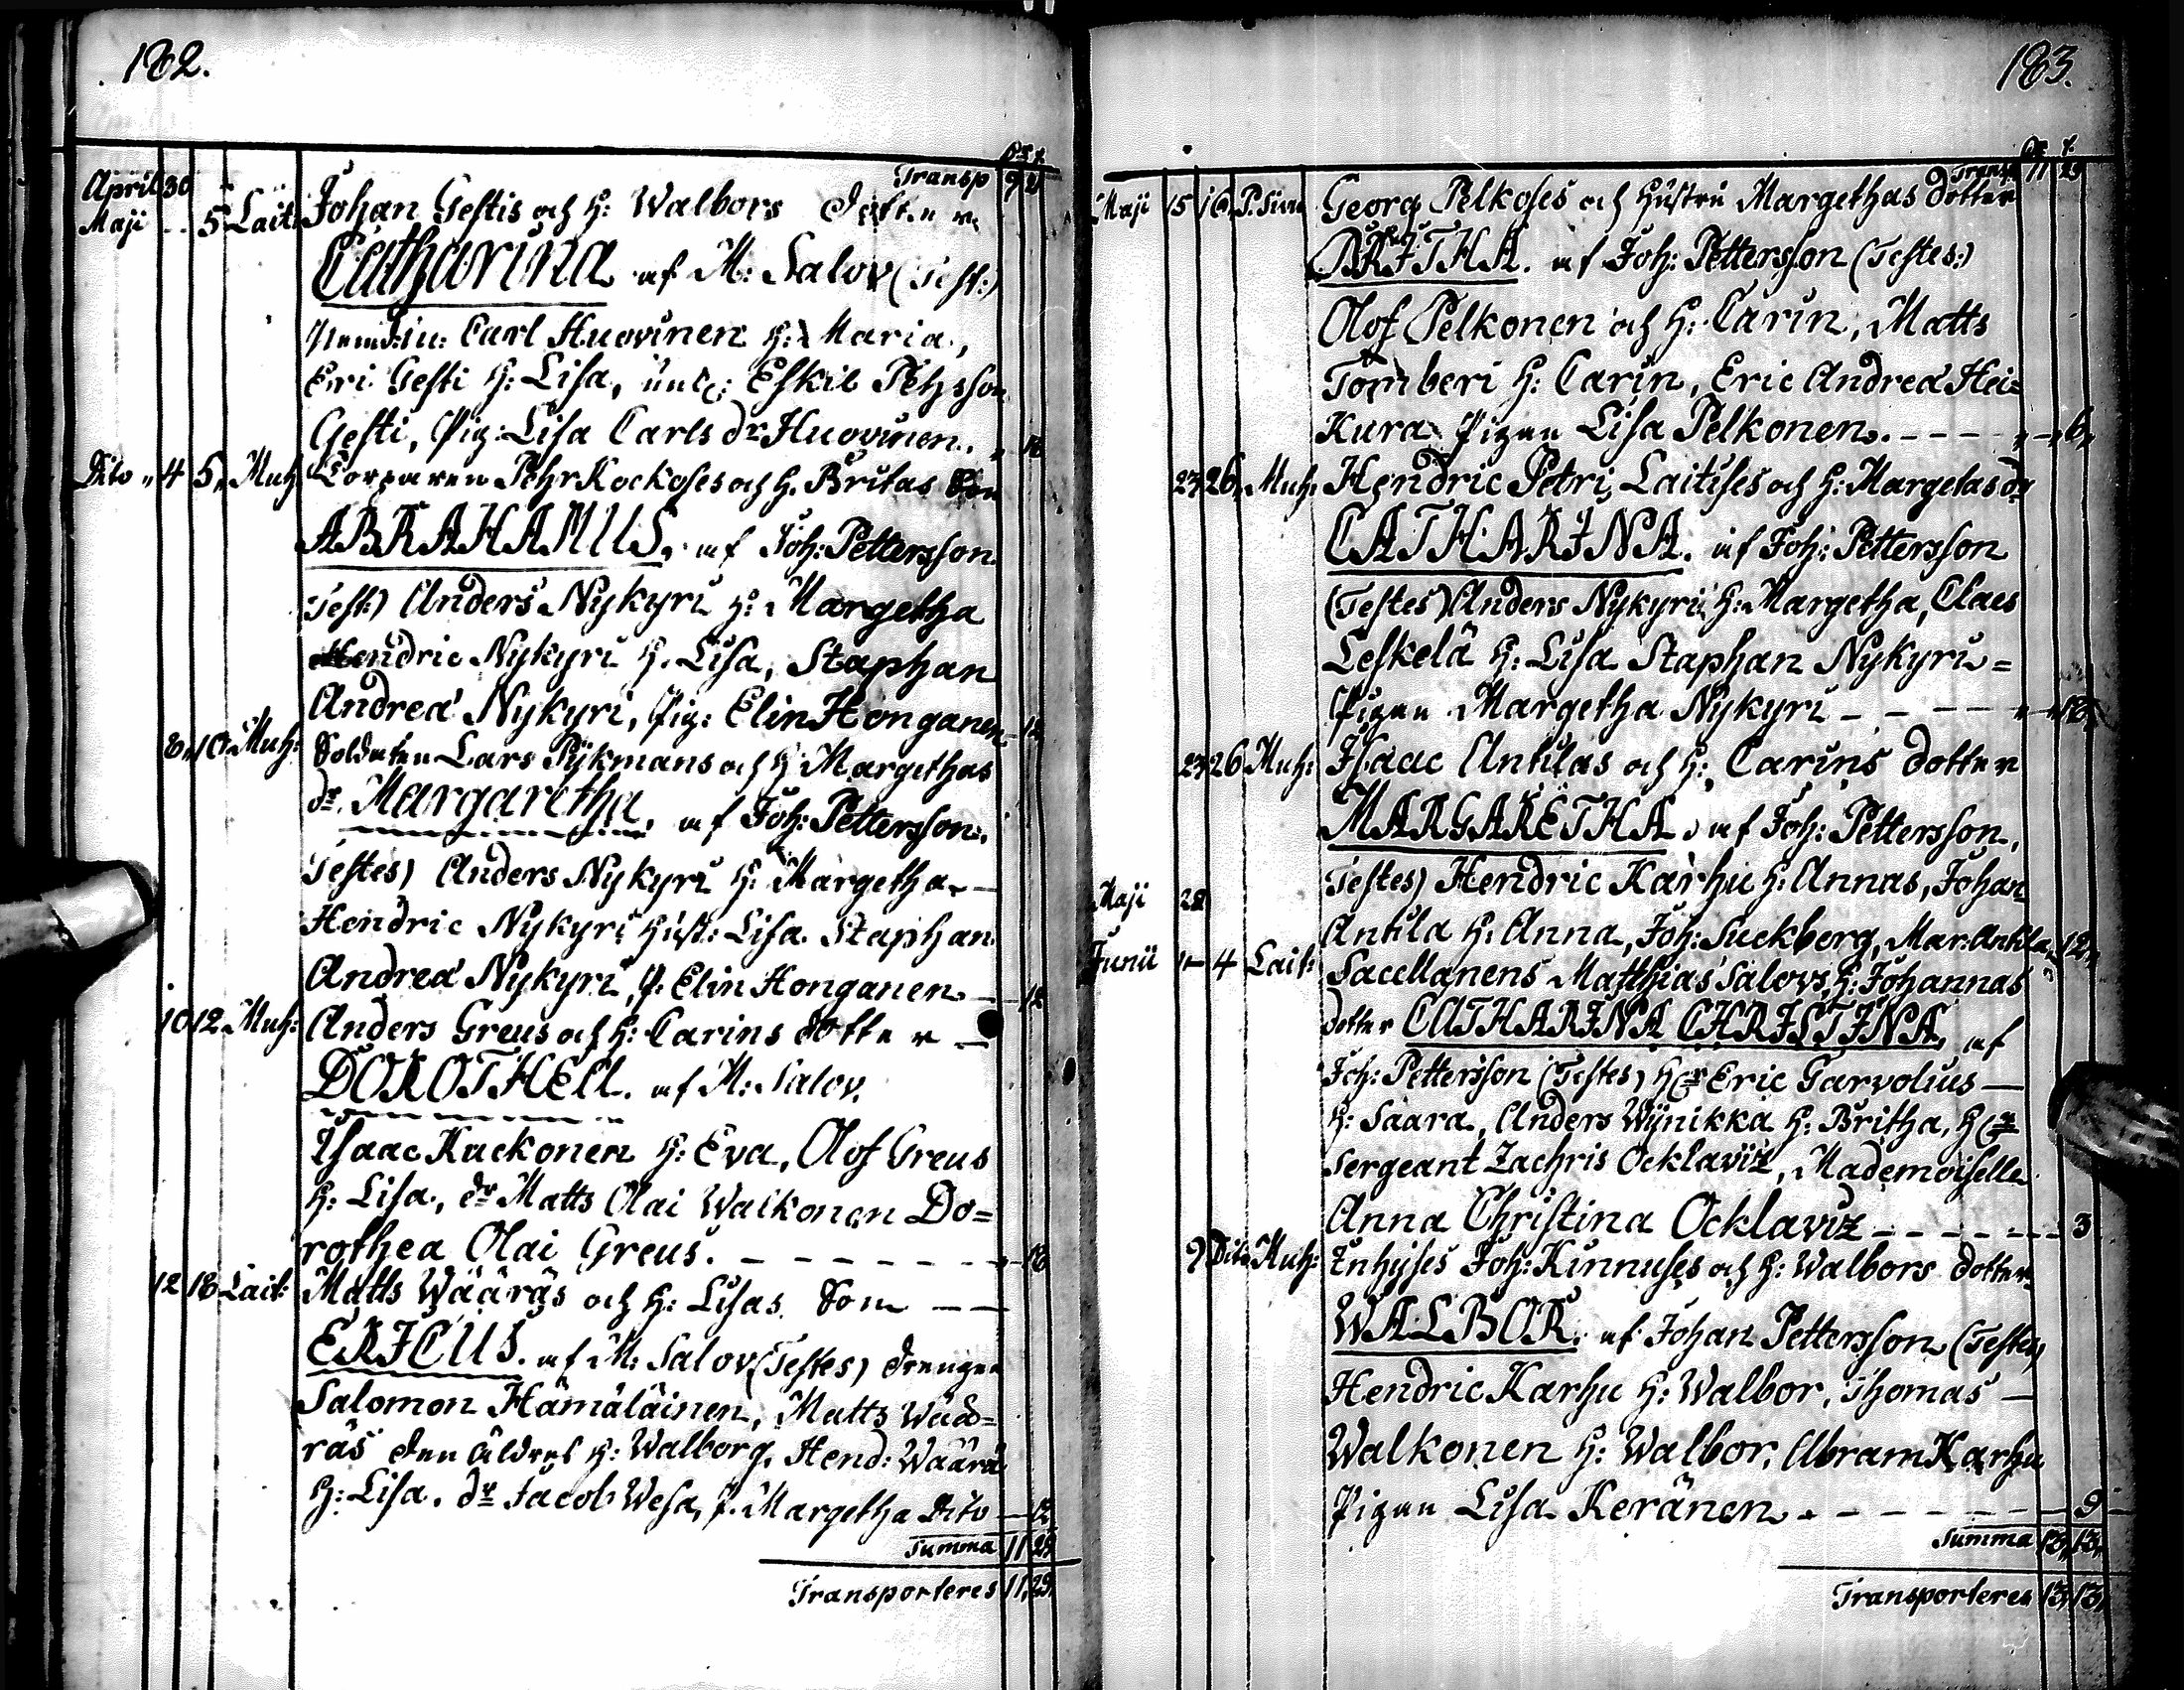 182.
Transp 9 21
April 30
Maji 5 Lait: Johan Gestis och H: Walbors dotter
Catharina af M: Salov (Test:)
Carl Huovinen H: Maria,
Eri Gesti H: Lisa, Eskil Pehrsson
Gesti, Pig: Lisa Carls dr Huovinen.
Dito 4 5 Muh: Corparen Pehr Kockoses och H. Britas Son
ABRAHAMUS, af Joh: Pettersson
Test:) Anders Nykyri H: Margetha
Hendric Nykyri H. Lisa, Staphan
Andreæ Nykyri, Pig: Elin Honganen 12
8 10 Muh: Soldaten Lars Pykmans och H Margethas
dr. Margaretha, af Joh: Pettersson.
Testes) Anders Nykyri H: Margetha
Hendric Nykyri Hust: Lisa Staphan
Andreæ Nykyri, P. Elin Honganen 12
10 12 Muh: Anders Greus och H: Carins dotter
DOROTHEA. af M: Salov.
Isaac Kuckonen H: Eva, Olof Greus
H: Lisa, dr Matts Olai Walkonen Do=
rothea Olai Greus.
12 18 Lait: Matts Wääräs och H: Lisas Son
ERICUS. af M: Salov (Testes) Drengen
Salomon Hämäläinen, Matts Wää=
räs den äldres H: Walborg, Hend: Wäärä
H: Lisa. dr Jacob Wesa, P. Margetha Dito 12
Summa 11 29
Transporteres 11 29
183.
Transp 11 29
Maji 15 16 Georg Pelkoses och Hustru Margethas dotter
BRITHA. af Joh: Pettersson (Testes:)
Olof Pelkonen och H: Carin, Matts
Tomberi H: Carin, Eric Andreæ Hei=
kura Pigan Lisa Pelkonen. 6
23 26 Muh: Hendric Petri Laitises och H: Margetas dr
CATHARINA. af Joh: Pettersson
(Testes) Anders Nykyri H: Margetha, Claes
Leskelä H: Lisa Staphan Nykyri
Pigan Margetha Nykyri
23 26 Muh: Isaac Antilas och H: Carins dotter
MARGARETHA, af Joh: Pettersson,
Testes) Hendric Karhu H: Annas, Johan
Maji 28
Antila H: Anna, Joh: Suckberg, Mar: Antila 12
Junii 1 4 Lait: Sacellanens Matthias Salovs, H: Johannas
dotter CATHARINA CHRISTINA, af
Joh: Pettersson (Testes) Hr Eric Garvolius
H: Saara, Anders Wynikka H: Britha, Hr
Sergeant Zachris Ocklaviz, Mademoiselle
Anna Christina Ocklaviz 3
2 Dito Muh: Inhyses Joh: Kinnuses och H: Walbors dotter
WALBOR. af Johan Pettersson (Testes)
Hendric Karhu H: Walbor, Thomas
Walkonen H: Walbor, Abram Karhu
Pigan Lisa Keränen 9
Summa 13 13
Transporteres 13 13